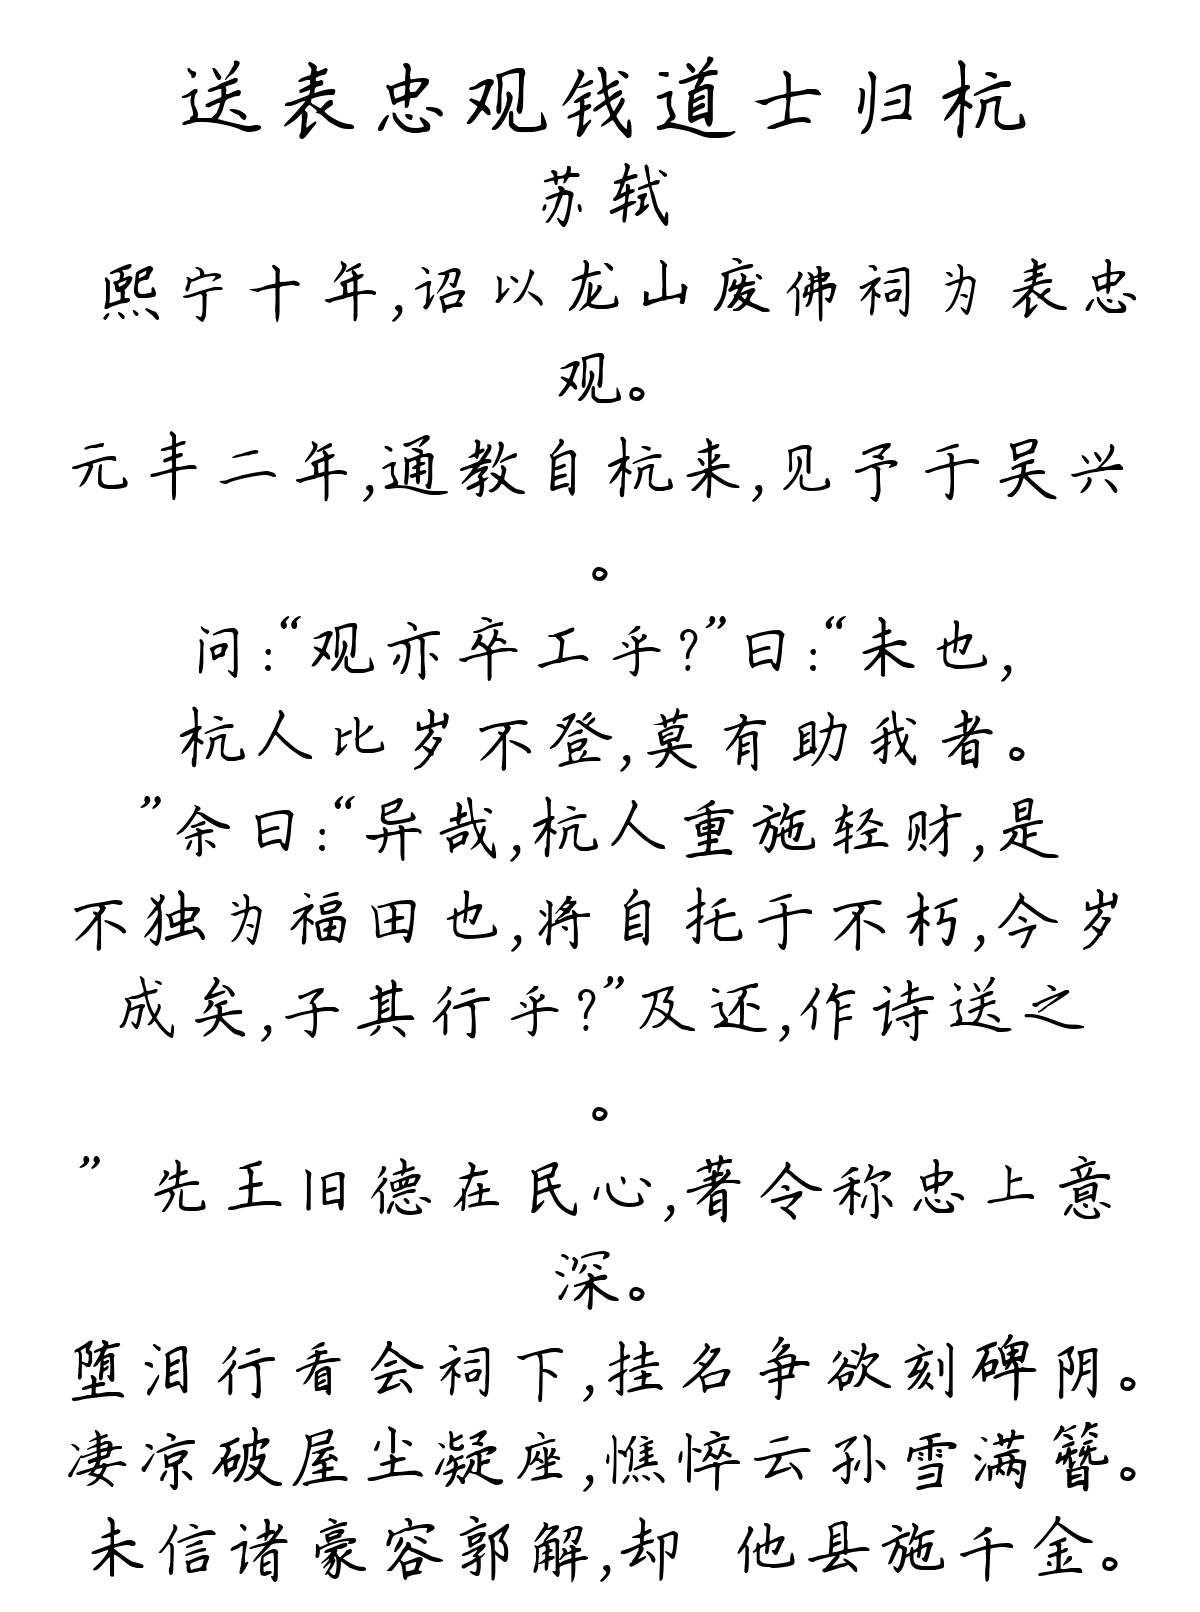 送表忠观钱道士归杭
苏轼
熙宁十年,诏以龙山废佛祠为表忠
观。
元丰二年,通教自杭来,见予于吴兴
。
问:“观亦卒工乎?”曰:“未也,
杭人比岁不登,莫有助我者。
”余曰:“异哉,杭人重施轻财,是
不独为福田也,将自托于不朽,今岁
成矣,子其行乎?”及还,作诗送之
。
” 先王旧德在民心,著令称忠上意
深。
堕泪行看会祠下,挂名争欲刻碑阴。
凄凉破屋尘凝座,憔悴云孙雪满簪。
未信诸豪容郭解,却 他县施千金。